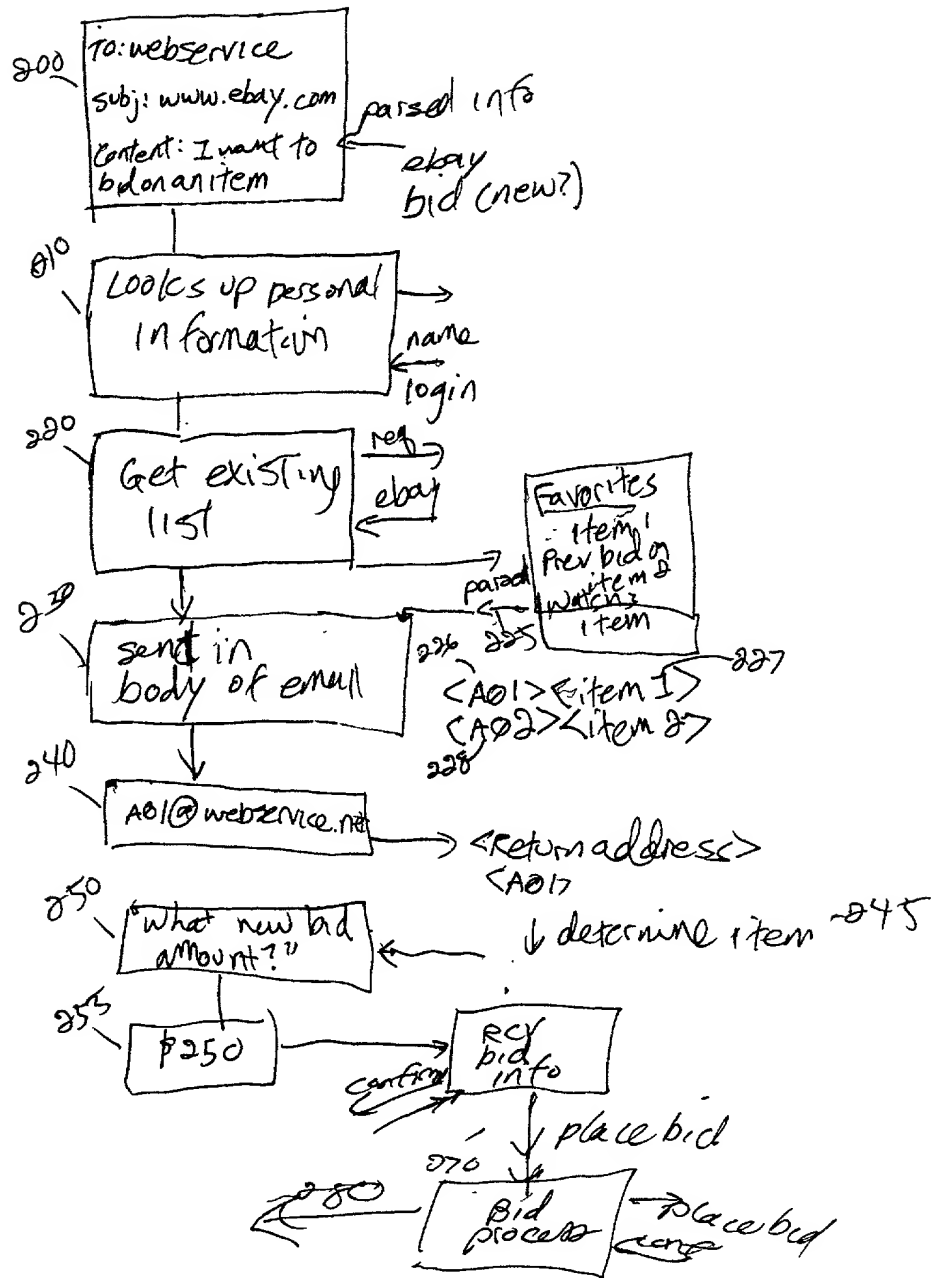 200
To: webservice
subj: www.ebay.com
Content: I want to
bid on an item
parsed info
ebay
bid (new?)
210
Looks up personal
information
name
login
220
Get existing
list
req
ebay
Favorites
item 1
Prev bid on
item 2
Watch
item
parsed
225
230
send in
body of email
226
227
<A01><item 1>
<A02><item 2>
228
240
A01@webservice.net
<return address>
<A01>
determine item 245
250
"What new bid
amount?"
255
$250
RCV
bid
info
confirm
place bid
270
280
Bid
process
place bid